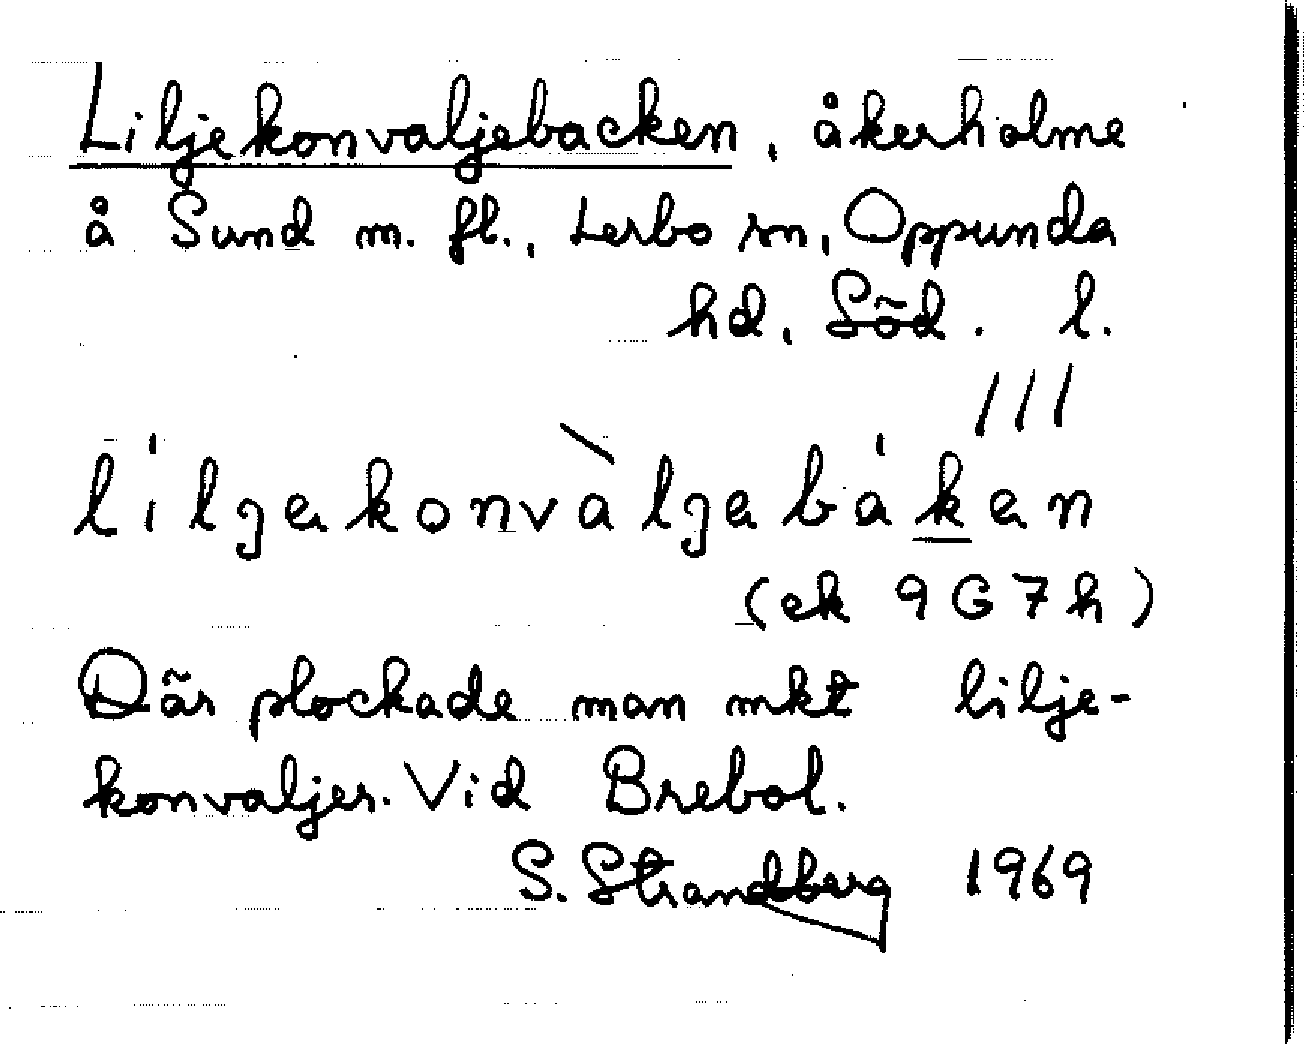 Liljekonvaljebacken, åkerholme
å Sund m. fl., Lerbo sn, Oppunda
hd, Söd. l.
///
liljekonvàljebaken
(ek 9G7h)
Där plockade man mkt lilje-
konvaljer. Vid Brebol.
S. Strandberg 1969